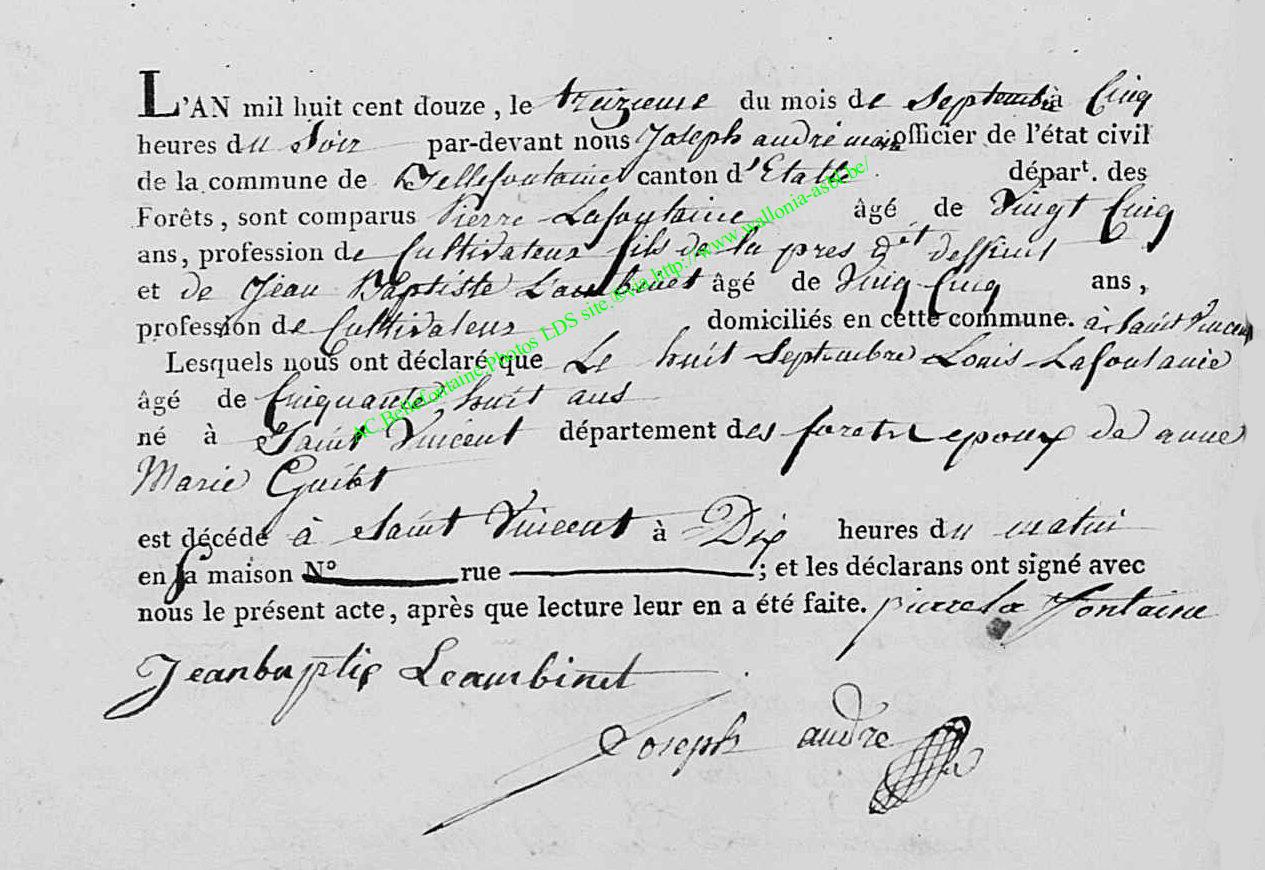 L'AN mil huit cent douze, le treizieme du mois de Septembre à Cinq
heures du Soir par-devant nous Joseph andré maire officier de l'état civil
de la commune de Bellefontaine canton d'Etalle départ. des
Forêts, sont comparus Pierre Lafontaine âgé de Vingt Cinq
ans, profession de Cultivateur fils de la pres deffunt
et de Jean Baptiste Lambinet âgé de Vingt Cinq ans,
profession de Cultivateur domiciliés en cette commune. à Saint Vincent
Lesquels nous ont déclaré que Le huit Septembre Louis Lafontaine
âgé de Cinquante huit ans
né à Saint Vincent département des foretz epoux de anne
Marie
est décédé à Saint Vincent à Dix heures du matin
en sa maison N° rue ; et les déclarans ont signé avec
nous le présent acte, après que lecture leur en a été faite. pierre la fontaine
Jeanbaptis Leambinet
Joseph andre
AC Bellefontaine Photos LDS site ©via http://www.wallonia-asbl.be/